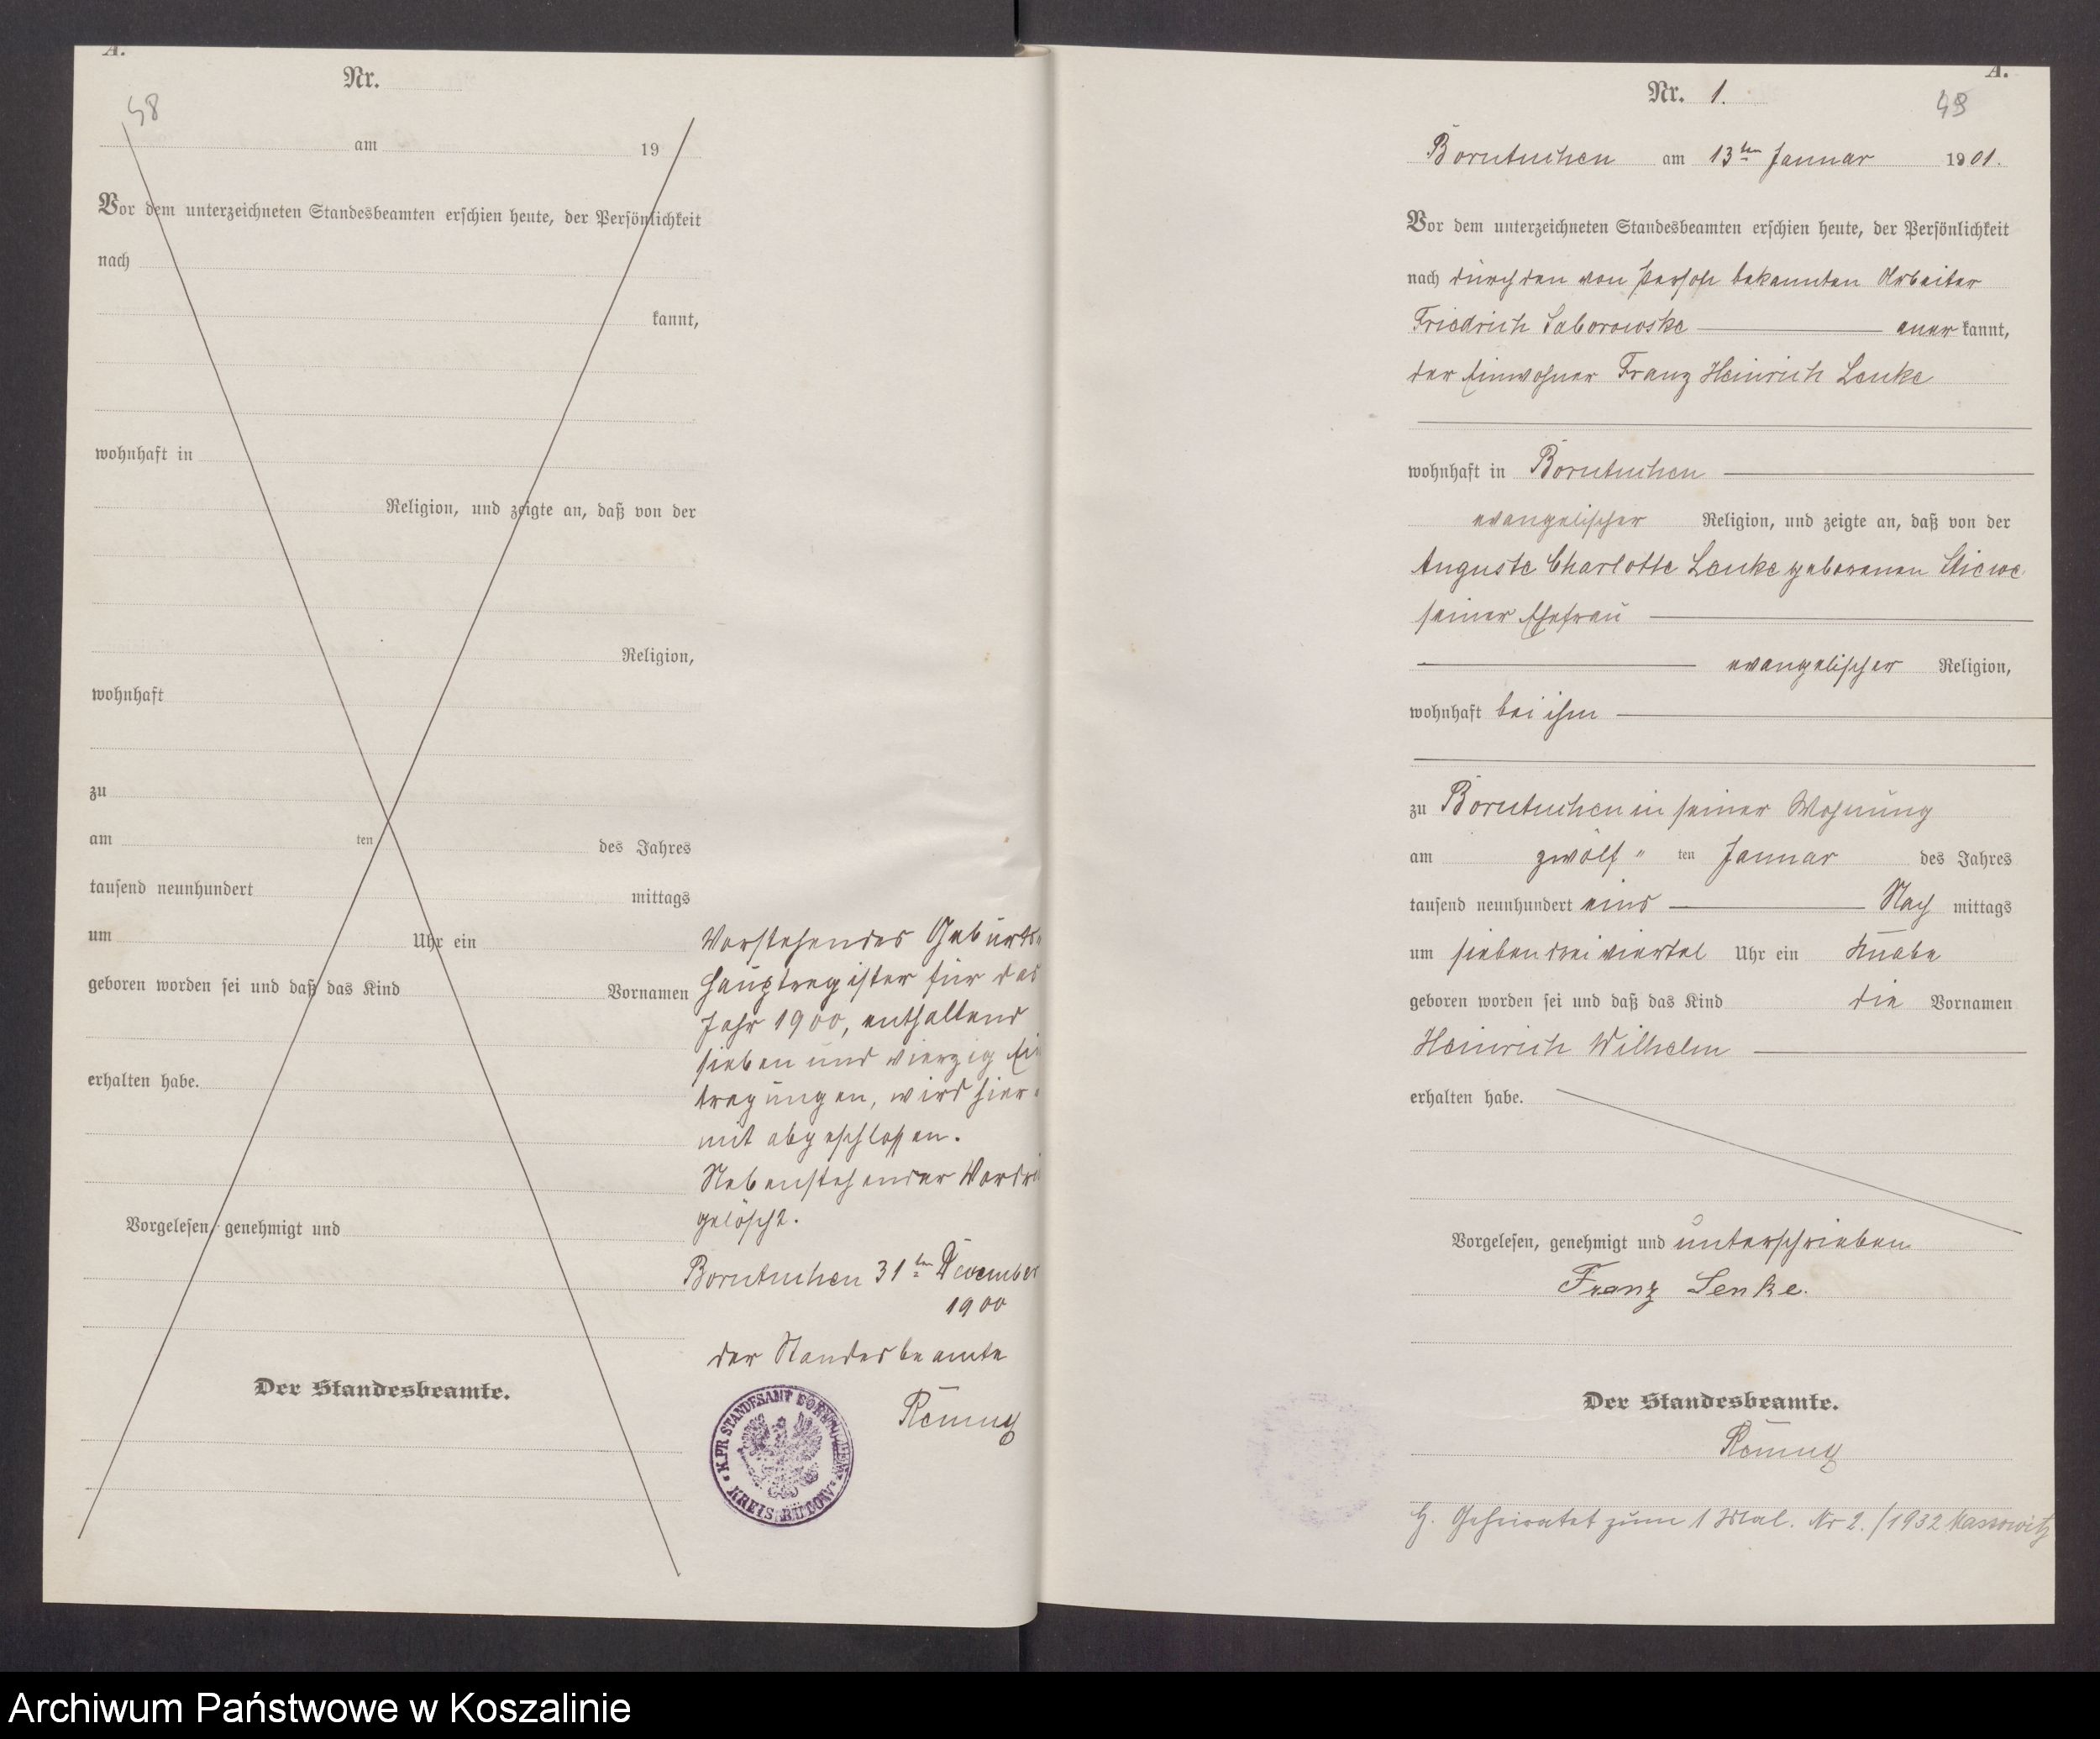 A.
Nr.
48
am 19
Vor dem unterzeichneten Standesbeamten erschien heute, der Persönlichkeit
nach
kannt,
wohnhaft in
Religion, und zeigte an, daß von der
Religion,
wohnhaft
zu
am ten des Jahres
tausend neunhundert mittags
um Uhr ein
geboren worden sei und daß das Kind Vornamen
erhalten habe.
Vorgelesen, genehmigt und
Der Standesbeamte.
Vorstehendes Geburts-
hauptregister für das
Jahr 1900, enthaltend
sieben und vierzig Ein
tragungen, wird hier-
mit abgeschlossen.
Nebenstehender Vordru
gelöscht.
Borntuchen 31ten December
1900
der Standesbeamte
K. PR. STANDESAMT BORNTUCHEN
KREIS BÜTOW
A.
Nr. 1.
49
Borntuchen am 13ten Januar 1901.
Vor dem unterzeichneten Standesbeamten erschien heute, der Persönlichkeit
nach durch den von Person bekannten Arbeiter
Friedrich Saborowske anerkannt,
der Einwohner Franz Heinrich Lenke
wohnhaft in Borntuchen
evangelischer Religion, und zeigte an, daß von der
Auguste Charlotte Lenke geborenen Stiewe
seiner Ehefrau
evangelischer Religion,
wohnhaft bei ihm
zu Borntuchen in seiner Wohnung
am zwölf " ten Januar des Jahres
tausend neunhundert eins Nach mittags
um sieben drei viertel Uhr ein Knabe
geboren worden sei und daß das Kind die Vornamen
Heinrich Wilhelm
erhalten habe.
Vorgelesen, genehmigt und unterschrieben
Franz Lenke.
Der Standesbeamte.
H. Geheiratet zum 1 Mal. Nr 2./1932 Massowitz
Archiwum Państwowe w Koszalinie